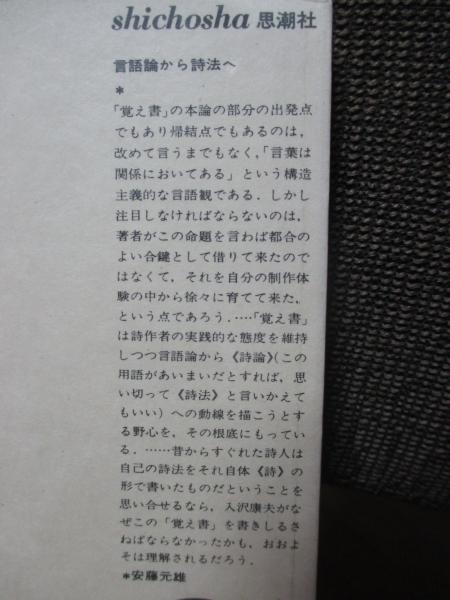 shichosha 思潮社
言語論から詩法へ
*
「覚え書」の本論の部分の出発点
でもあり帰結点でもあるのは，
改めて言うまでもなく，「言葉は
関係においてある」という構造
主義的な言語観である．しかし
注目しなければならないのは，
著者がこの命題を言わば都合の
よい合鍵として借りて来たので
はなくて，それを自分の制作体
験の中から徐々に育てて来た，
という点であろう．‥‥「覚え書」
は詩作者の実践的な態度を維持
しつつ言語論から《詩論》(この
用語があいまいだとすれば，思
い切って《詩法》と言いかえて
もいい）への動線を描こうとす
る野心を，その根底にもってい
る．……昔からすぐれた詩人は
自己の詩法をそれ自体《詩》の
形で書いたものだということを
思い合せるなら，入沢康夫がな
ぜこの「覚え書」を書きしるさ
ねばならなかったかも，おおよ
そは理解されるだろう．
*安藤元雄